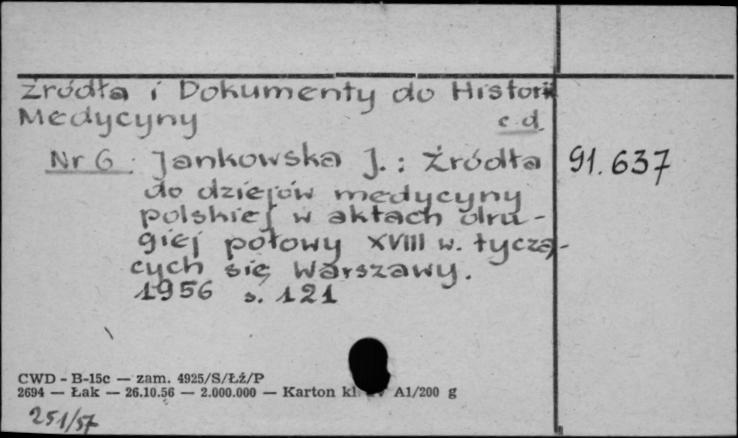 Źródła i Dokumenty do Historii
Medycyny c.d.
Nr 6. Jankowska J.: Źródła 91.637
do dziejów medycyny
polskiej w aktach dru-
giej połowy XVIII w. tyczą-
cych się Warszawy.
1956 s. 121
CWD - B-15c — zam. 4925/S/Łż/P
2694 — Łak — 26.10.56 — 2.000.000 — Karton kl. A1/200 g
251/57